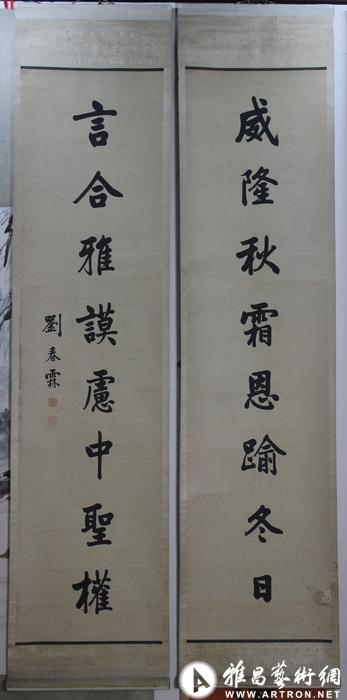 威隆秋霜恩踰冬日
言合雅謨慮中聖權
劉春霖
雅昌藝術網
WWW.ARTRON.NET